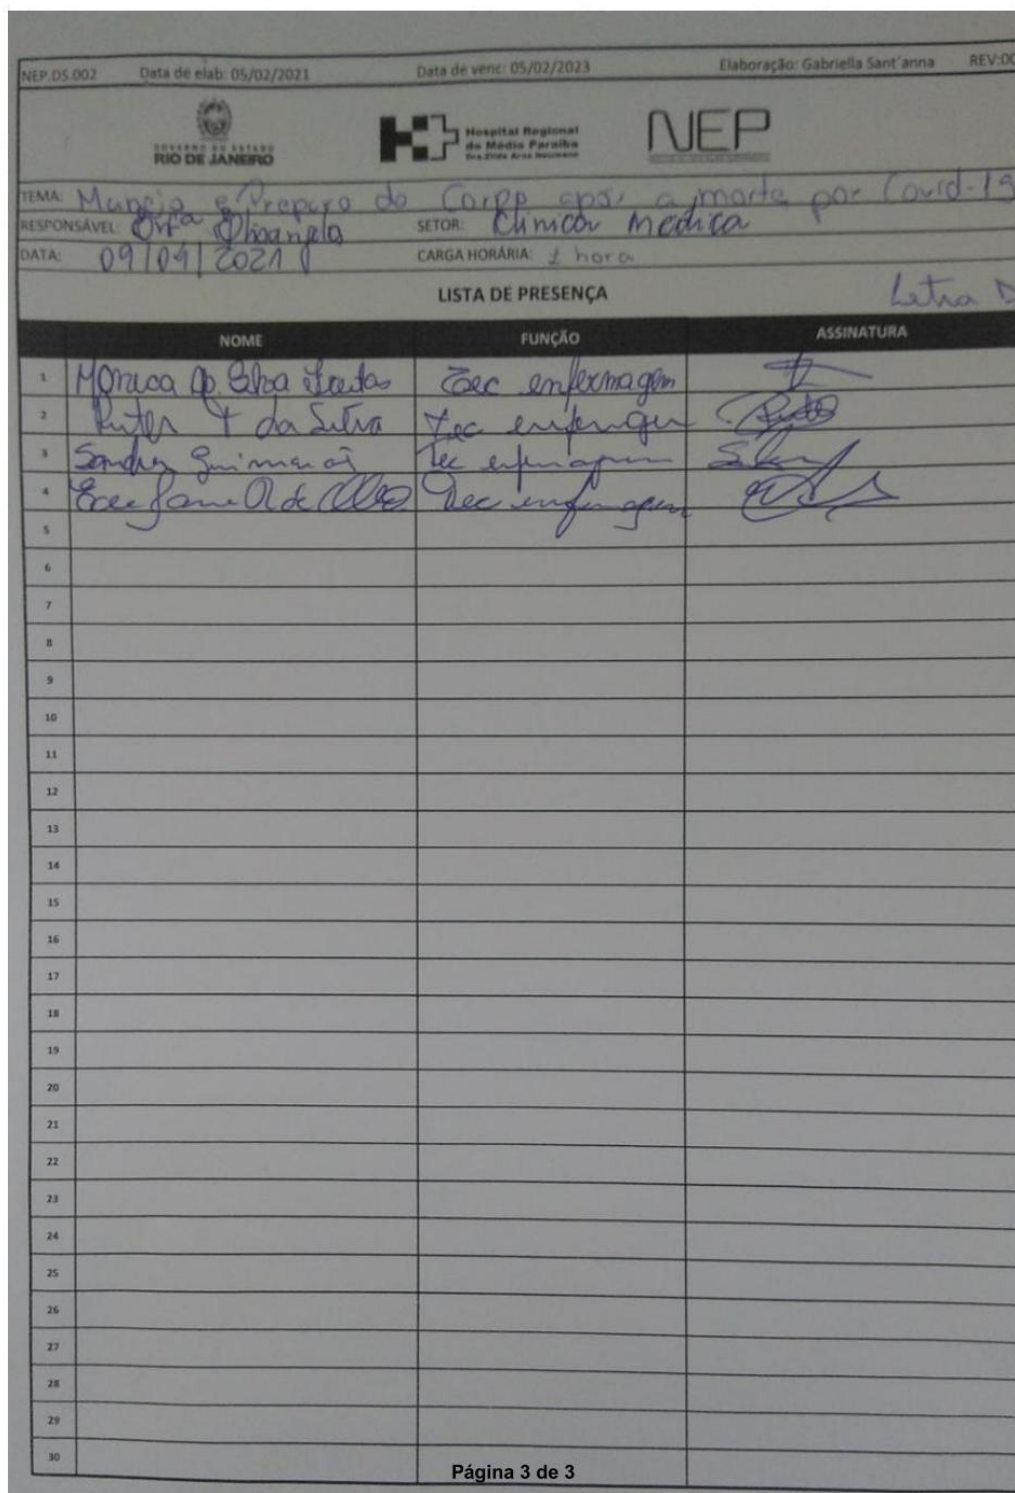 NEP.DS.002 Data de elab: 05/02/2021 Data de venc: 05/02/2023 Elaboração: Gabriella Sant'anna REV:00
GOVERNO DO ESTADO
RIO DE JANEIRO
Hospital Regional
do Médio Paraíba
Dra. Zilda Arns Neumann
NEP
TEMA: Manejo e Preparo do Corpo após a morte por Covid-19
RESPONSÁVEL: Enfª SETOR: Clínica Médica
DATA: 09/04/2021 CARGA HORÁRIA: 1 hora
LISTA DE PRESENÇA Letra D
NOME FUNÇÃO ASSINATURA
1 Monica da Silva Freitas Tec enfermagem
2 da Silva Tec enfermagem
3 Sandra Guimarães Tec enfermagem
4 Tec enfermagem
5
6
7
8
9
10
11
12
13
14
15
16
17
18
19
20
21
22
23
24
25
26
27
28
29
30
Página 3 de 3